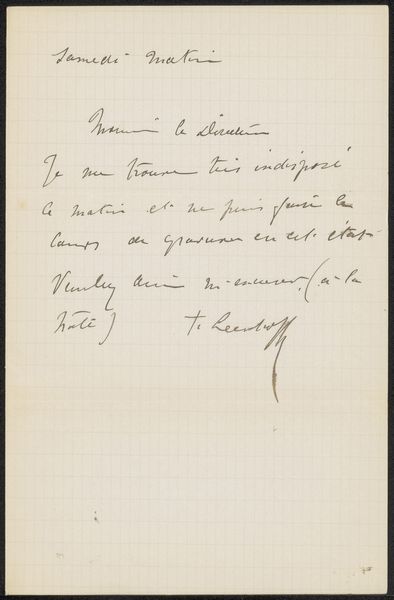 Samedi Matin
Monsieur le Directeur
Je me trouve très indisposé
ce matin et ne puis faire le
cours de gravure en cet état.
Veuillez donc m'excuser, (à la
hâte) F. Leenhoff